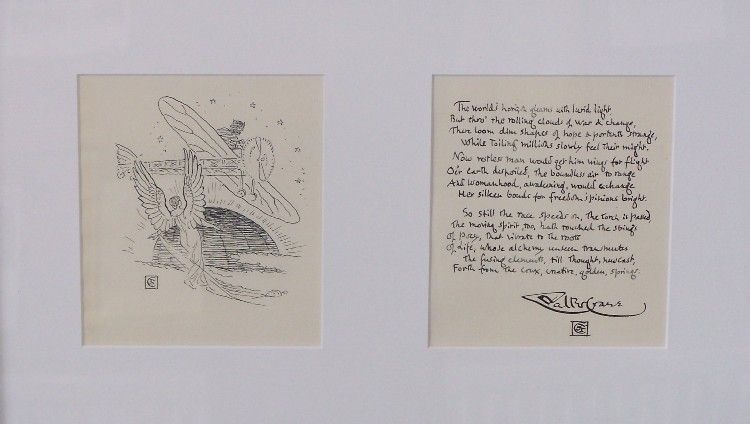 The world's horizon gleams with lurid light,
But thro' the rolling clouds of war & change,
There loom dim shapes of hope & portents strange,
While Toiling millions slowly feel their might.
Now restless man would get him wings for flight
O'er earth despoiled, The boundless air to range
And womanhood, awakening, would exchange
Her silken bonds for freedom's pinions bright.
So still the race speeds on, The torch is passed
The moving spirit, too, hath touched the strings
of poesy, that vibrate to the roots
of Life, whose alchemy unseen transmutes
The fusing elements, till Thought, new cast,
Forth from the crux, creative, golden, springs.
Walter Crane